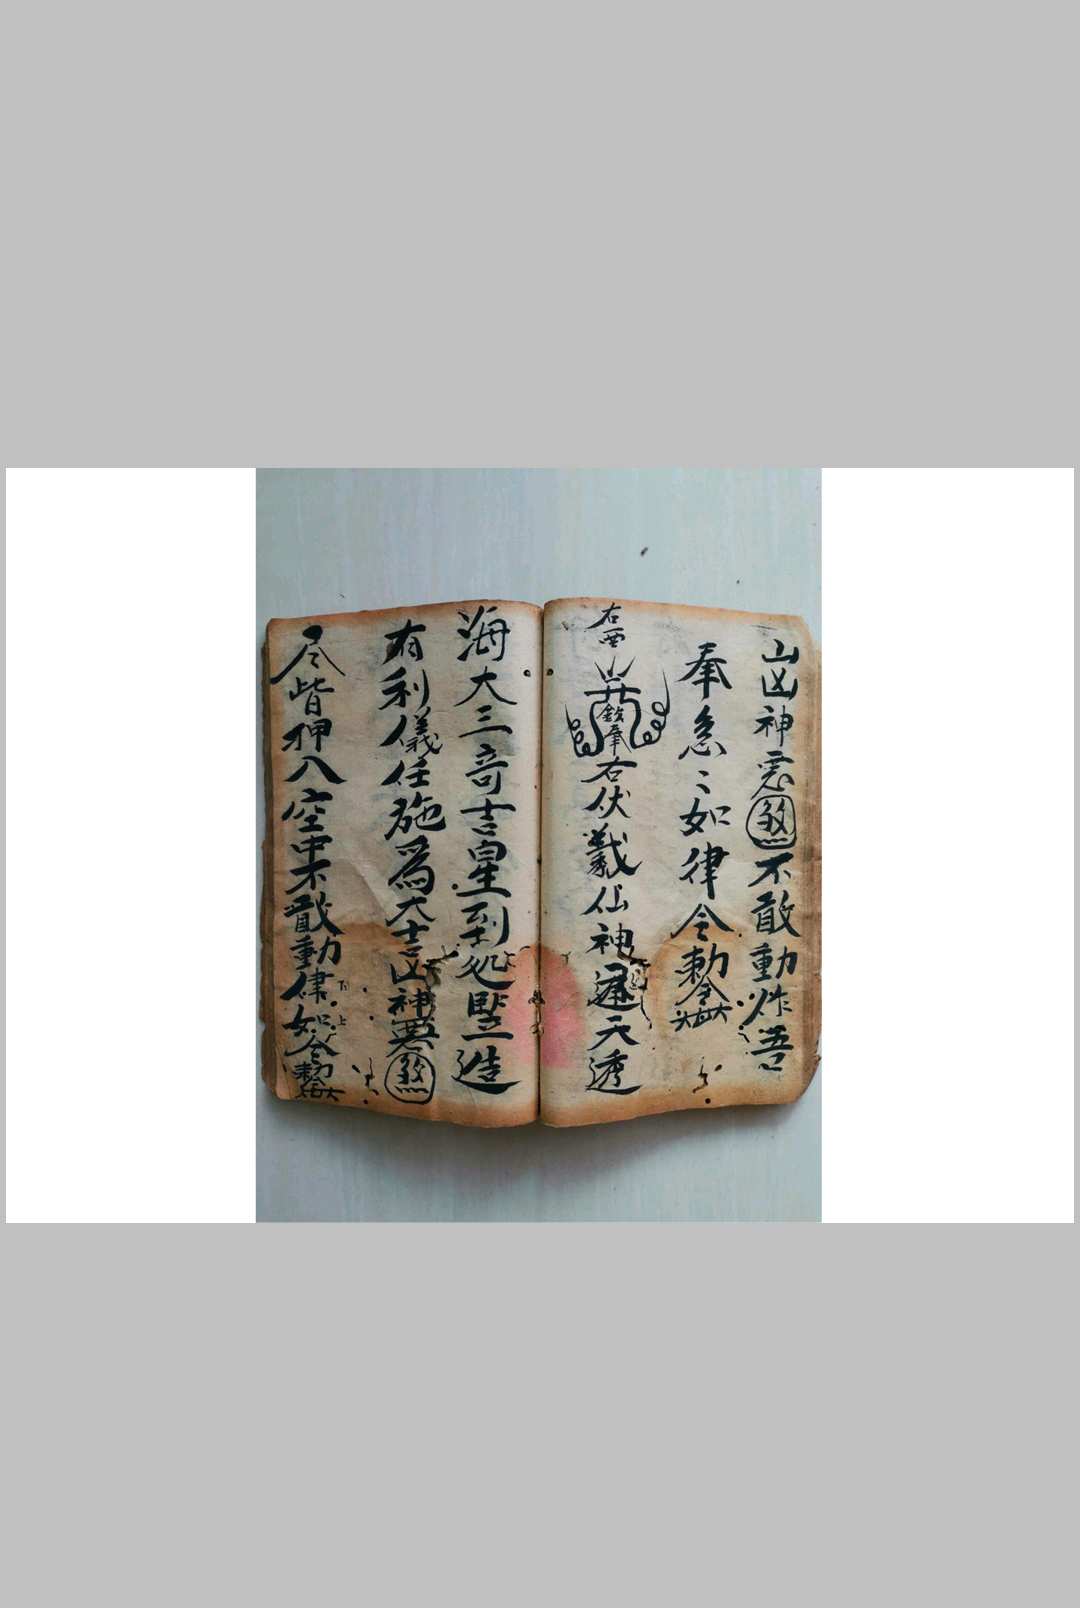 山凶神惡煞不敢動作吾
奉急〻如律令勅令
右西
敕奉右伏羲仙神通天透
海大三奇吉星到処竪造
有利儀任施為大吉凶神惡煞
尽皆押入空中不敢動律如令勅
下上